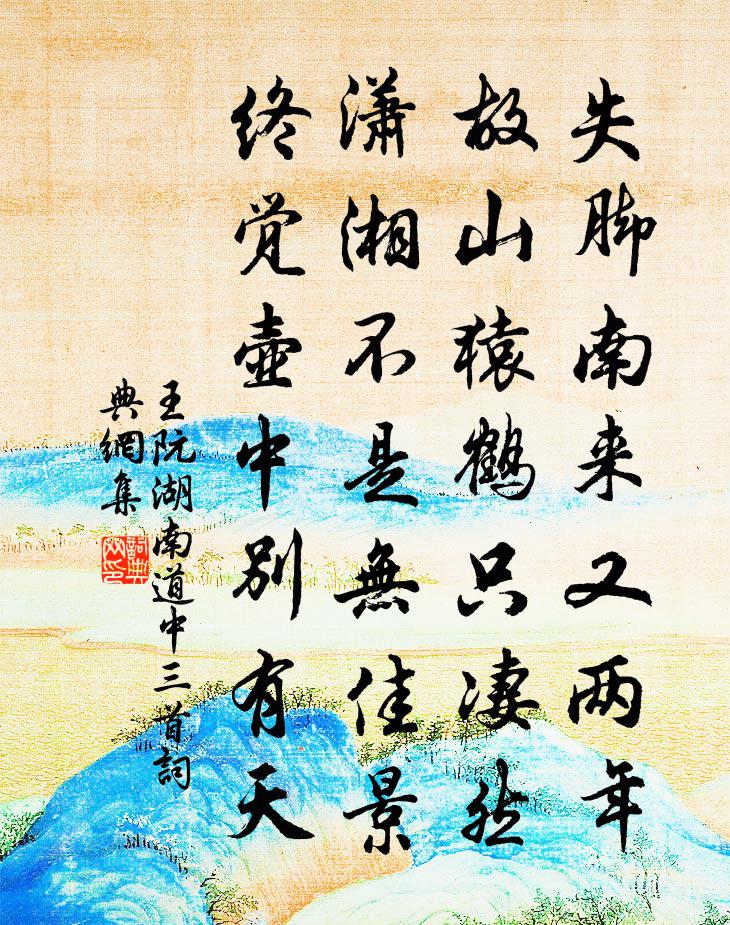 失脚南来又两年
故山猿鹤只凄然
潇湘不是無佳景
终觉壶中别有天
王阮湖南道中三首詞
典網集
詞典
网印